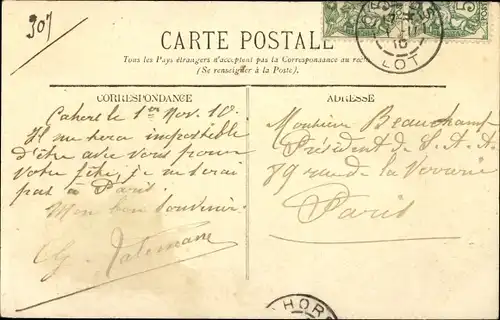 307
CARTE POSTALE
Tous les Pays étrangers n'acceptent pas la Correspondance au recto
(Se renseigner à la Poste).
LOT
10
CORRESPONDANCE
Cahors le 1er Nov. 10.
Il me sera impossible
d'être avec vous pour
votre fête, je ne serai
pas à Paris.
Mon bon souvenir.
ADRESSE
Monsieur Beauchamp
Président de S. A. A.
89 rue de la Verrerie
Paris
HOR